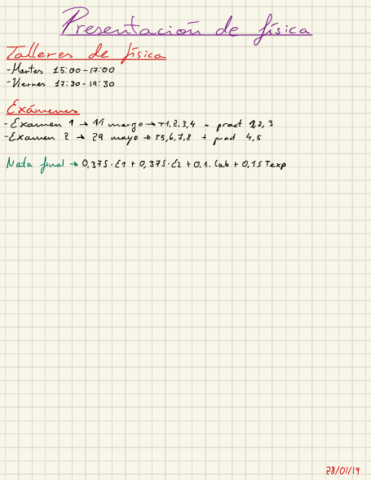 Presentación de física
Talleres de física
- Martes 15:00-17:00
- Viernes 17:30-19:30
Exámenes
- Examen 1 → 11 marzo → T1,2,3,4 + pract 1,2,3
- Examen 2 → 29 mayo → T5,6,7,8 + pract 4,5
Nota final → 0,375·E1 + 0,375·E2 + 0,1·Lab + 0,15 Texp
28/01/19